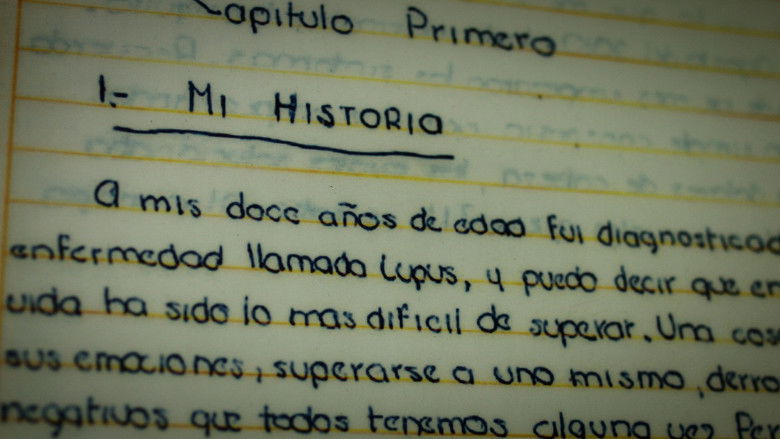 Capitulo Primero
1.- MI HISTORIA
A mis doce años de edad fui diagnosticad
enfermedad llamada Lupus, y puedo decir que en
vida ha sido lo mas dificil de superar. Una cos
sus emociones, superarse a uno mismo, derro
negativos que todos tenemos alguna vez Per